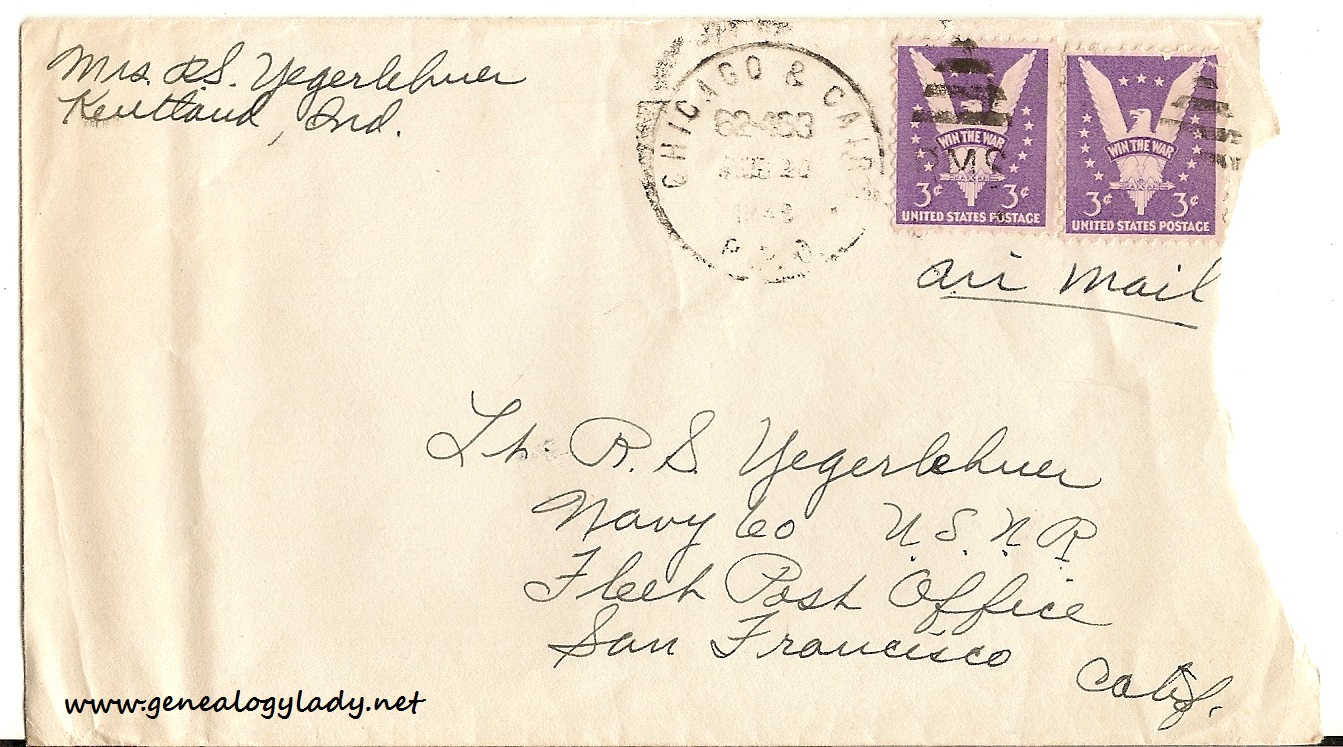 Mrs. R.S. Yegerlehner
Kentland, Ind.
CHICAGO & CARB
R.P.O.
RMS
WIN THE WAR
3¢ 3¢
UNITED STATES POSTAGE
WIN THE WAR
3¢ 3¢
UNITED STATES POSTAGE
Air Mail
Lt. R. S. Yegerlehner
Navy 60 U.S.N.R.
Fleet Post Office
San Francisco
Calif.
www.genealogylady.net